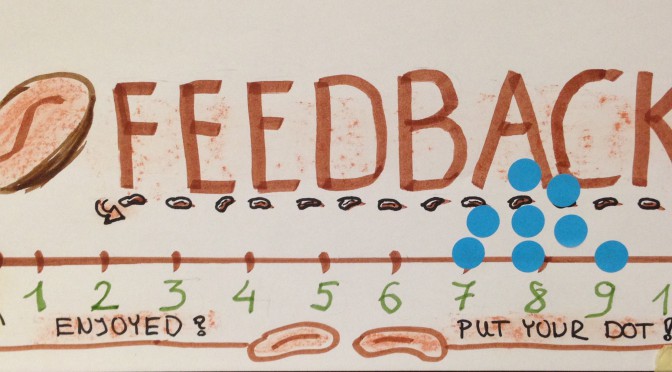 FEEDBACK
1 2 3 4 5 6 7 8 9 1
ENJOYED? PUT YOUR DOT!